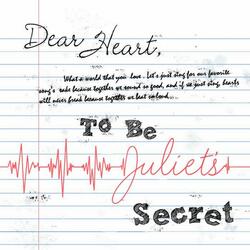 Dear Heart,
What a world that you love. Let's just sing for our favorite
song's sake because together we sound so good, and if we just sing, hearts
will never break because together we beat on beat...
To Be
Juliet's
Secret